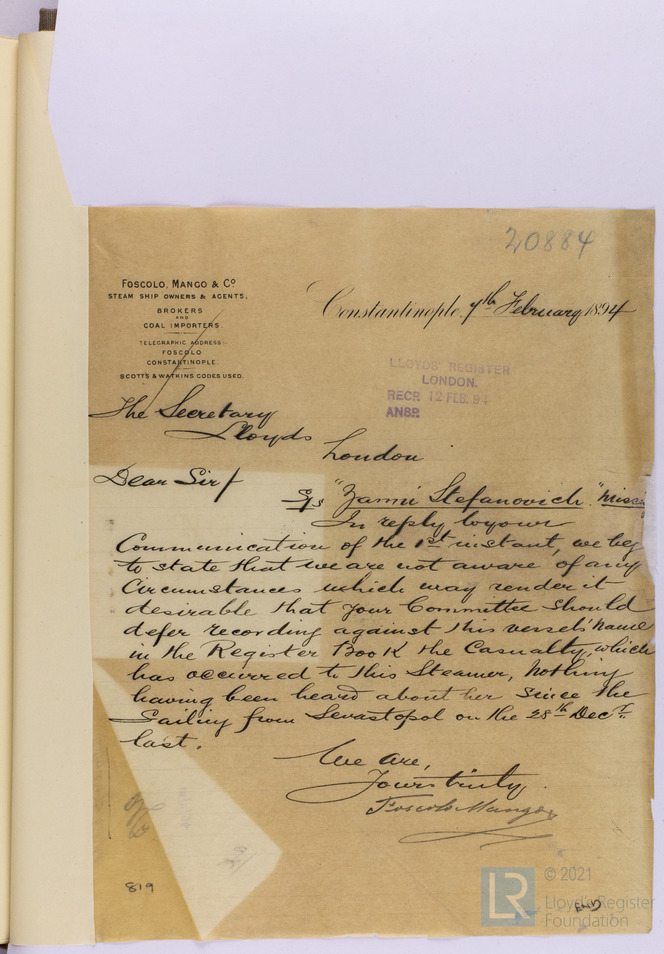 20884
FOSCOLO, MANGO & Co
STEAM SHIP OWNERS & AGENTS,
BROKERS
AND
COAL IMPORTERS.
TELEGRAPHIC ADDRESS:-
FOSCOLO
CONSTANTINOPLE.
SCOTT'S & WATKINS CODES USED.
Constantinople, 7th February 1894
LLOYDS' REGISTER
LONDON.
RECD 12 FEB. 94
ANSD.
The Secretary
Lloyds
London
Dear Sir/
S/s "Zanni Stefanovich" Missing
In reply to your
Communication of the 1st instant, we beg
to state that we are not aware of any
Circumstances which may render it
desirable that your Committee should
defer recording against this vessels' name
in the Register Book the Casualty, which
has occurred to this Steamer, Nothing
having been heard about her since the
Sailing from Sevastopol on the 28th Decr.
last.
We are,
Yours truly
Foscolo Mango
819
END
LR
© 2021
Lloyd's Register
Foundation